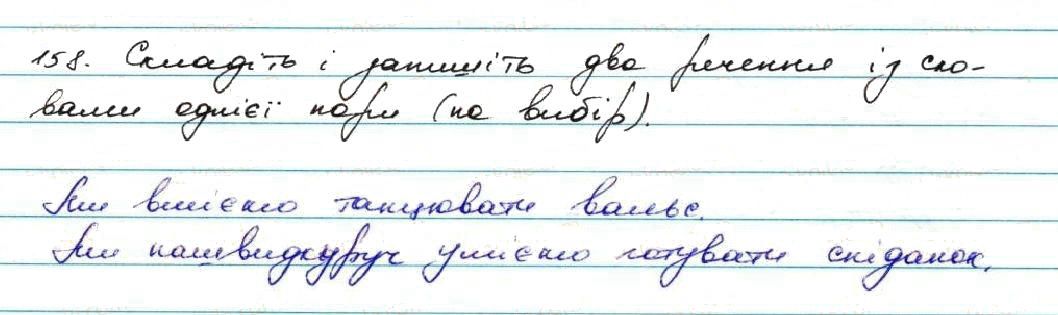 158. Складіть і запишіть два речення із сло-
вами однієї пари (на вибір).
Ми вміємо танцювати вальс.
Ми нашвидкуруч уміємо готувати сніданок.